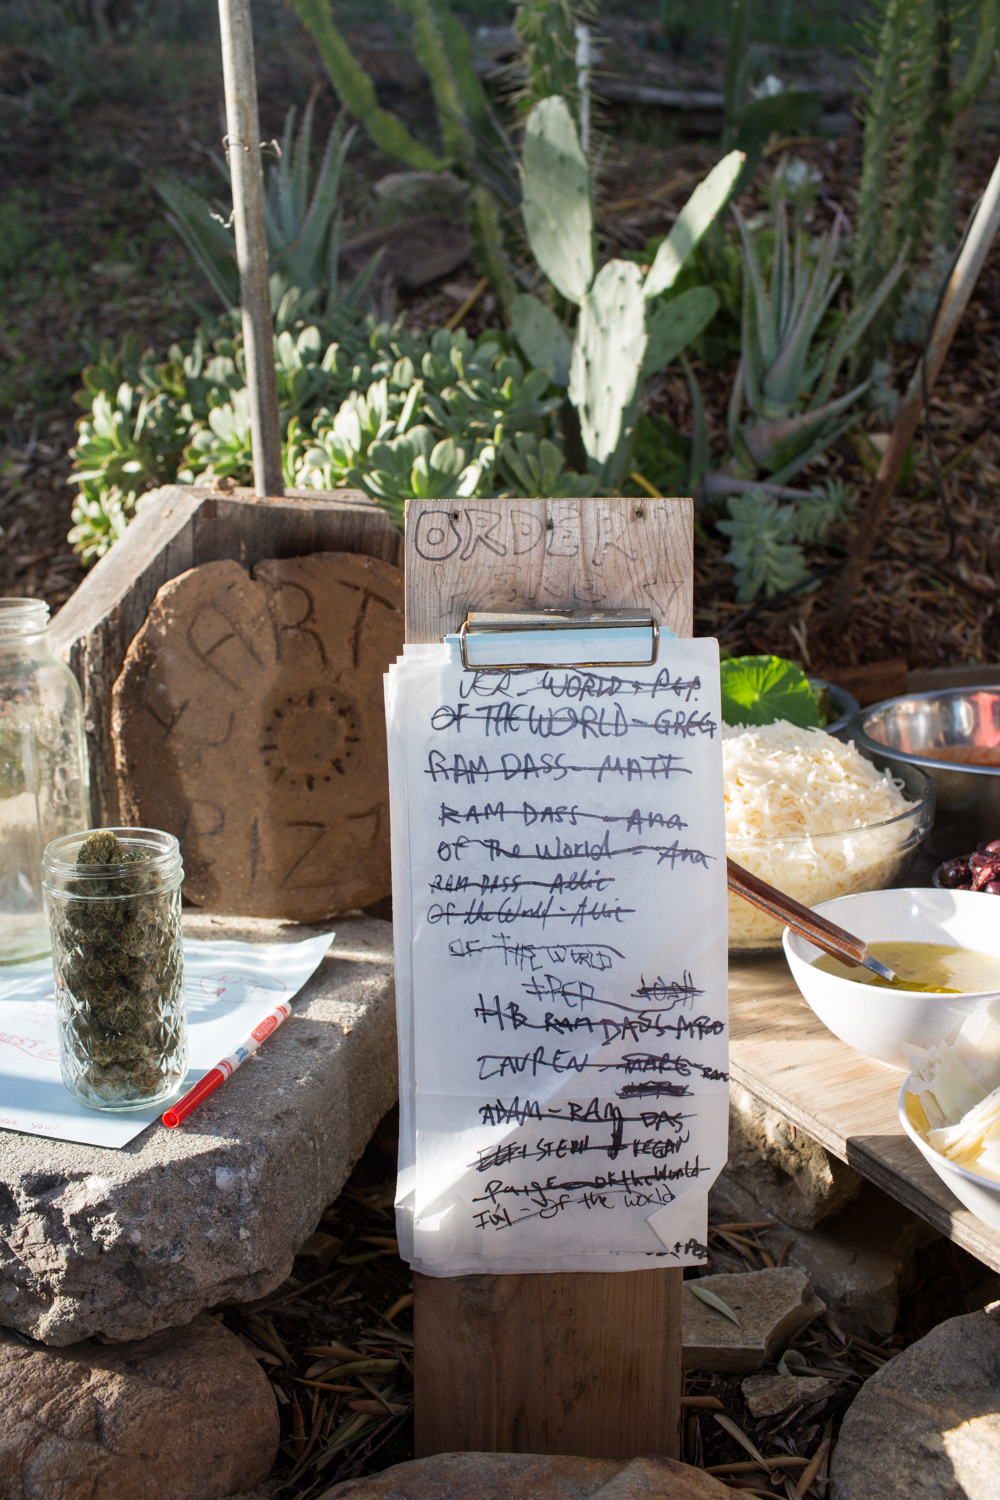 ORDER
ART
PIZZ
JER - WORLD + PEP.
OF THE WORLD - GREG
RAM DASS - MATT
RAM DASS - Ana
Of The World - Ana
RAM DASS - Allie
Of the World - Allie
OF THE WORLD
+ PEP
HB RAM DASS
LAUREN - MARG
ADAM - RAM DAS
STEIN
Paige - of the World
- Of the World